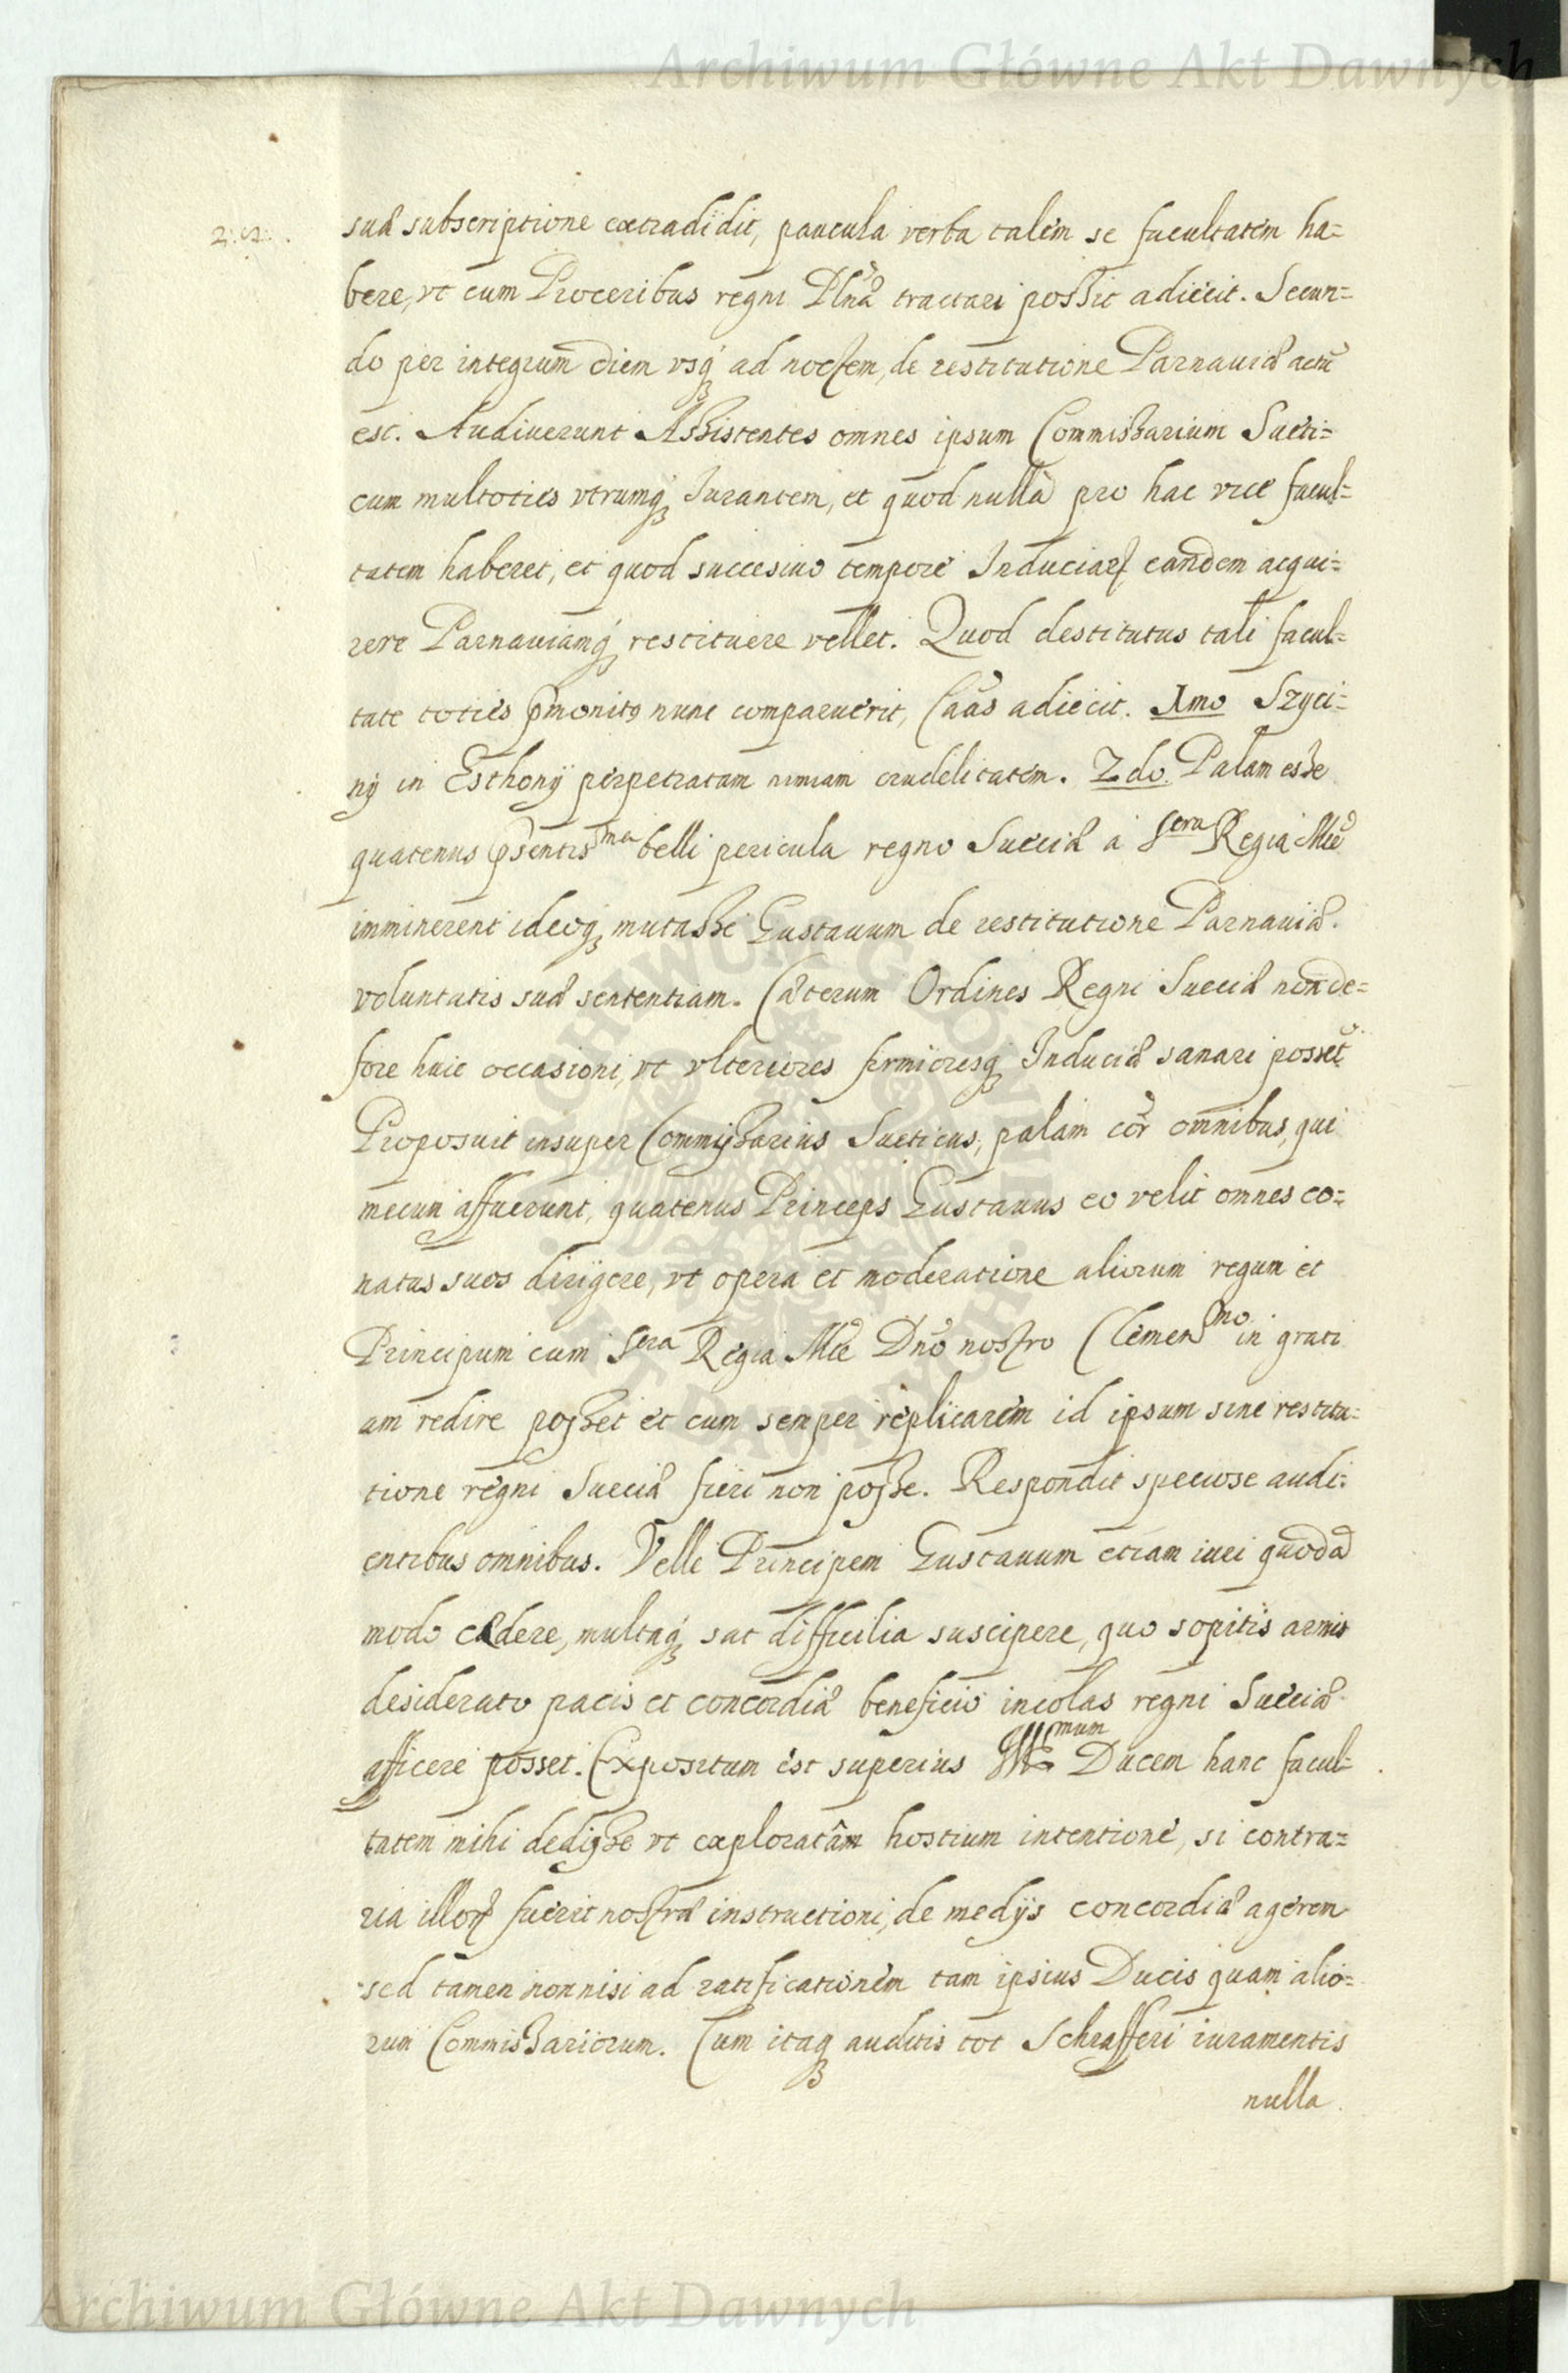 Archiwum Główne Akt Dawnych
suæ subscriptione extradidit, paucula verba talem se facultatem ha=
bere, vt cum Proceribus regni Plnæ tractari possit adiecit. Secun=
do per integrum diem vsq́ ad noctem, de restitutione Parnauiæ actū
est. Audiuerunt Assistentes omnes ipsum Commissarium Sueti=
cum multoties vtrumq́ Jurantem, et quod nullā pro hac vice facul=
tatem haberet, et quod succesiuo tempore Induciaꝝ eandem acqui=
rere Parnauiamq́ restituere vellet. Quod destitutus tali facul=
tate toties p̄monitꝰ nunc comparuerit, Cāas adiecit. 1mo Szyci=
nÿ in Esthonÿ perpetratam nimiam crudelitatem. 2do. Palam esse
quatenus p̄sentissma belli pericula regno Sueciæ a Sera Regia Mtē
imminerent ideoq́ mutasse Gustauum de restitutione Parnauiæ.
voluntatis suæ sententiam. Cæterum Ordines Regni Sueciæ non de=
fore huic occasioni, vt vlteriores firmioresq́ Induciæ sanari possēt
Proposuit insuper Commissarius Sueticus, palam cōr omnibus, qui
mecum affuerunt, quatenus Princeps Gustauus eo velit omnes co=
natus suos dirigere, vt opera et moderatione aliorum regum et
Principum cum Sera Regia Mtē Dnō nostro Clemenssmo in grati
am redire posset et cum semper replicarem id ipsum sine restitu=
tione regni Sueciæ fieri non posse. Respondit speciose audi:
entibus omnibus. Velle Principem Gustauum etiam iuri quodā
modo cædere, multaq́ sat difficilia suscipere, quo sopitis armis
desiderato pacis et concordiæ beneficio incolas regni Sueciæ
afficere posset. Expositum est superius Illmum Ducem hanc facul=
tatem mihi dedisse vt exploratâm hostium intentionē, si contra=
ria illoꝝ fuerit nostræ instructioni, de medÿs concordiæ agerem
sed tamen nonnisi ad ratificationem tam ipsius Ducis quam alio=
rum Commissariorum. Cum itaq́ auditis tot Schrafferi iuramentis
nulla
Archiwum Główne Akt Dawnych